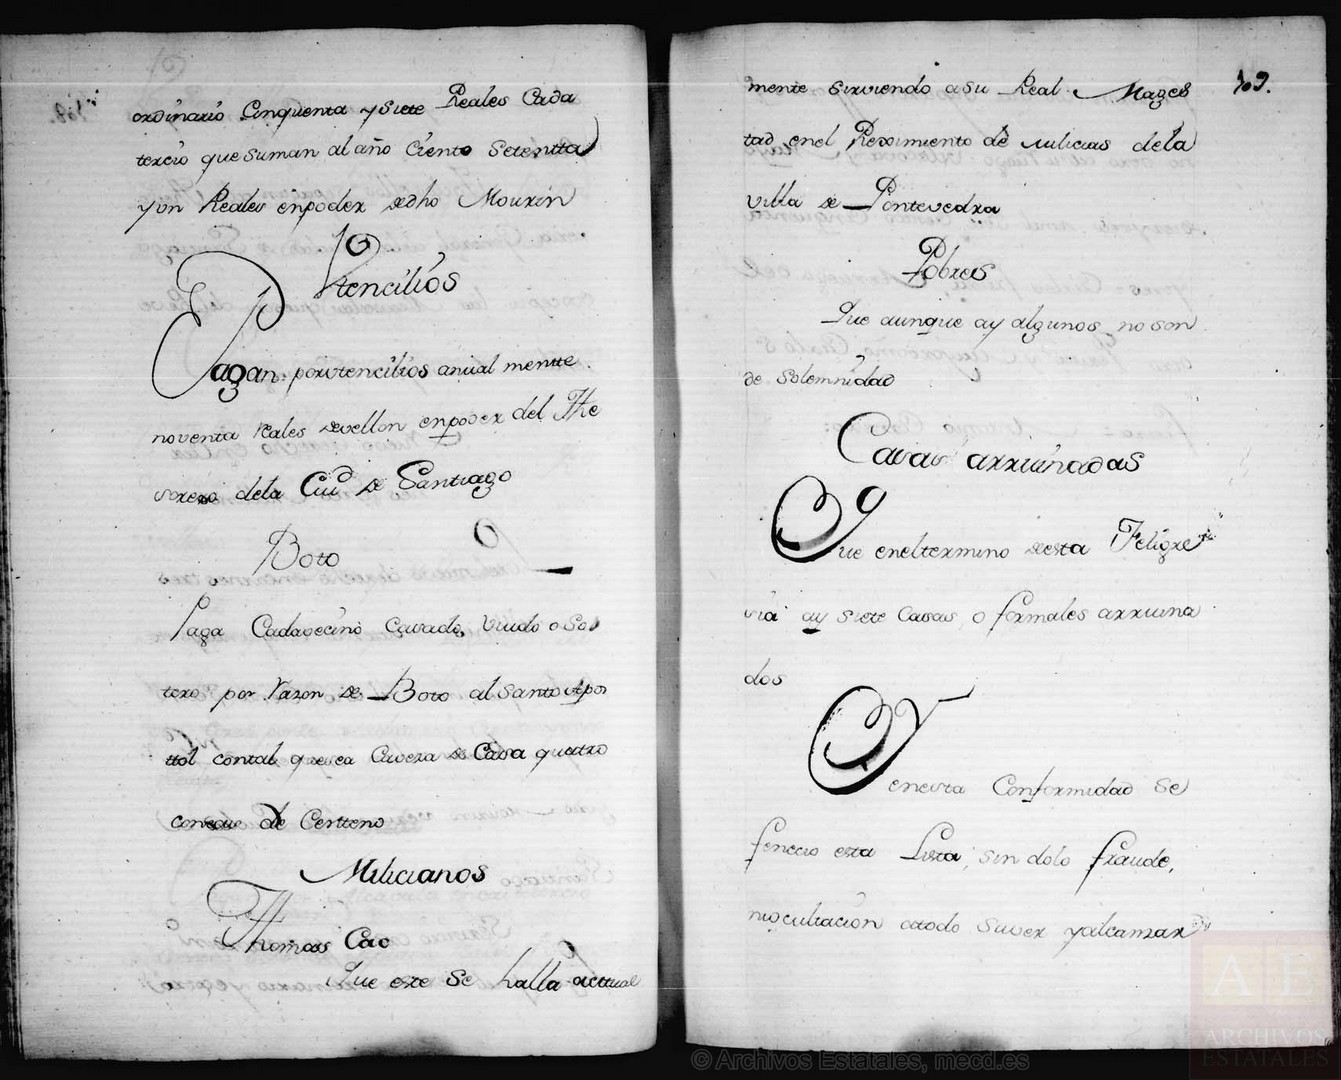 ordinario Cinquenta y siete Reales Cada
tercio que suman al año Ciento Setentta
y un Reales en poder de dho Mourin
Vtencilios
Pagan por vtencilios anual mentte
noventa reales de vellon en poder del The
sorero de la Ciud de Santiago
Boto
Paga Cada vecino Casado, Viudo o Sol
tero por razon de Boto al Santo Apos
ttol con tal que sea Caveza de Casa quattro
de Centteno
Milicianos
Thomas Cao
Que este se halla acttual
169.
mente sirviendo a su Real Mages
tad en el Reximiento de Milicias de la
villa de Pontevedra
Pobres
Que aunque ay algunos no son
de Solemnidad
Casas arruinadas
Que en el termino de esta Feligre
sia ay siete Casas, o formales arruina
dos
Y en esta Conformidad se
fenecio esta Lista, sin dolo fraude,
ni ocultacion a todo Saver y alcanzar
© Archivos Estatales, mecd.es
AE
ARCHIVOS
ESTATALES